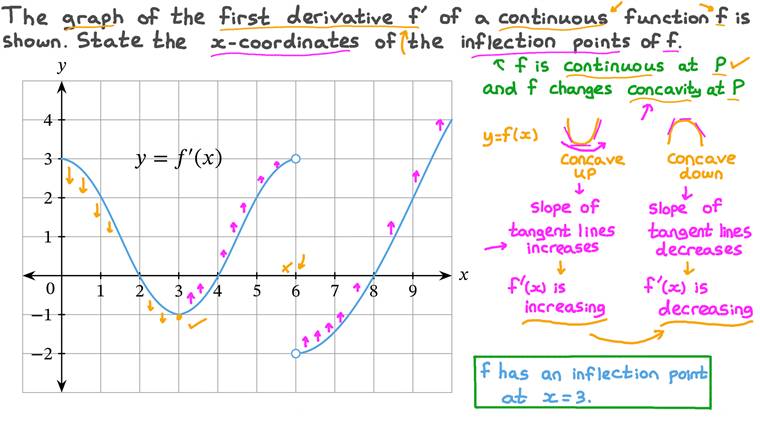 The graph of the first derivative f′ of a continuous function f is
shown. State the x-coordinates of the inflection points of f.
f is continuous at P ✓
and f changes concavity at P
y
4
3
2
1
0
−1
−2
1 2 3 4 5 6 7 8 9
x
y = f′(x)
y=f(x)
concave
UP
concave
down
slope of
tangent lines
increases
slope of
tangent lines
decreases
f′(x) is
increasing
f′(x) is
decreasing
f has an inflection point
at x=3.